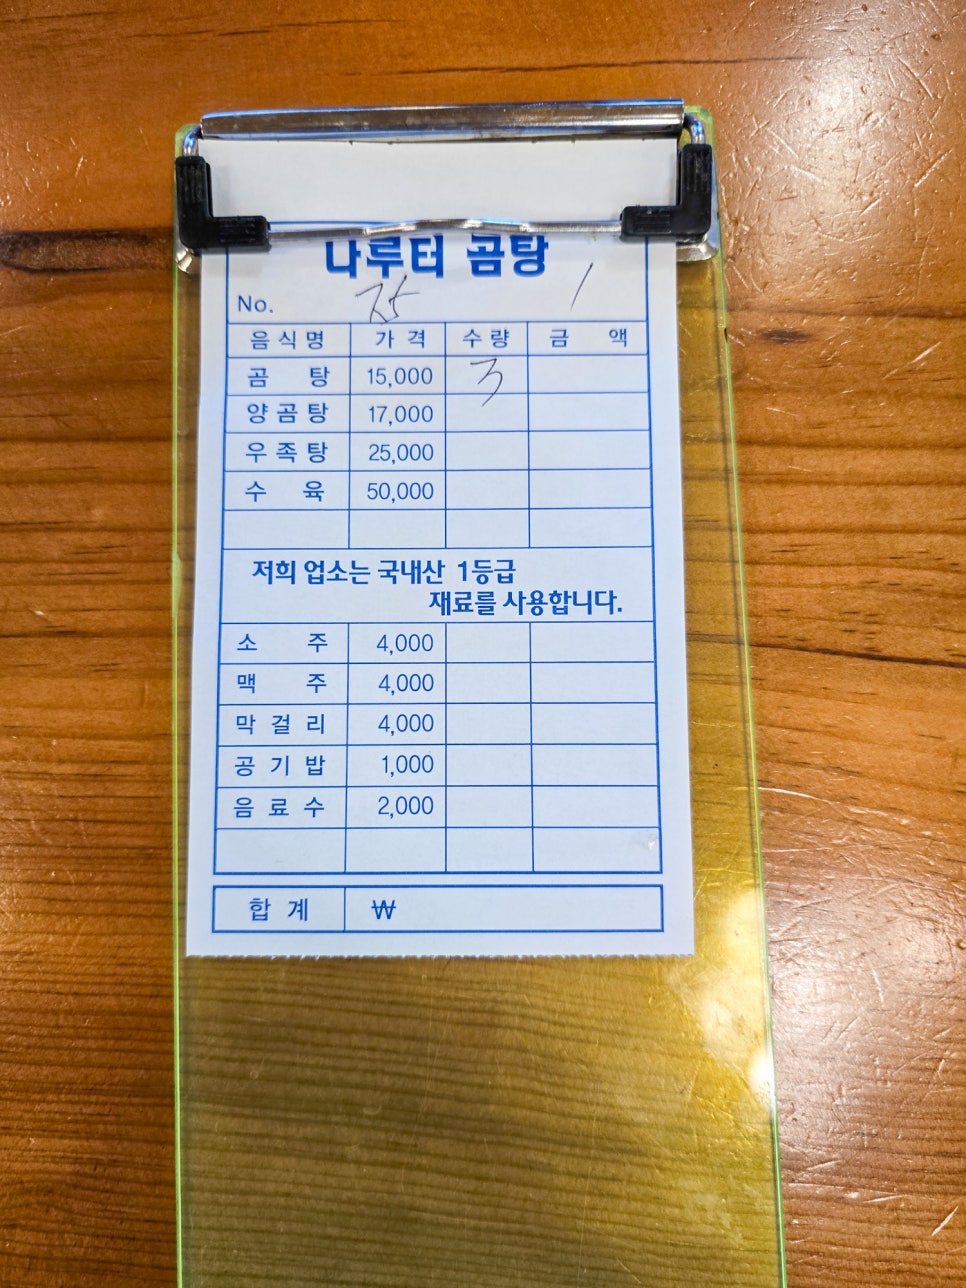 나루터 곰탕
No. 1
음식명 가격 수량 금액
곰탕 15,000 3
양곰탕 17,000
우족탕 25,000
수육 50,000
저희 업소는 국내산 1등급
재료를 사용합니다.
소주 4,000
맥주 4,000
막걸리 4,000
공기밥 1,000
음료수 2,000
합계 ₩